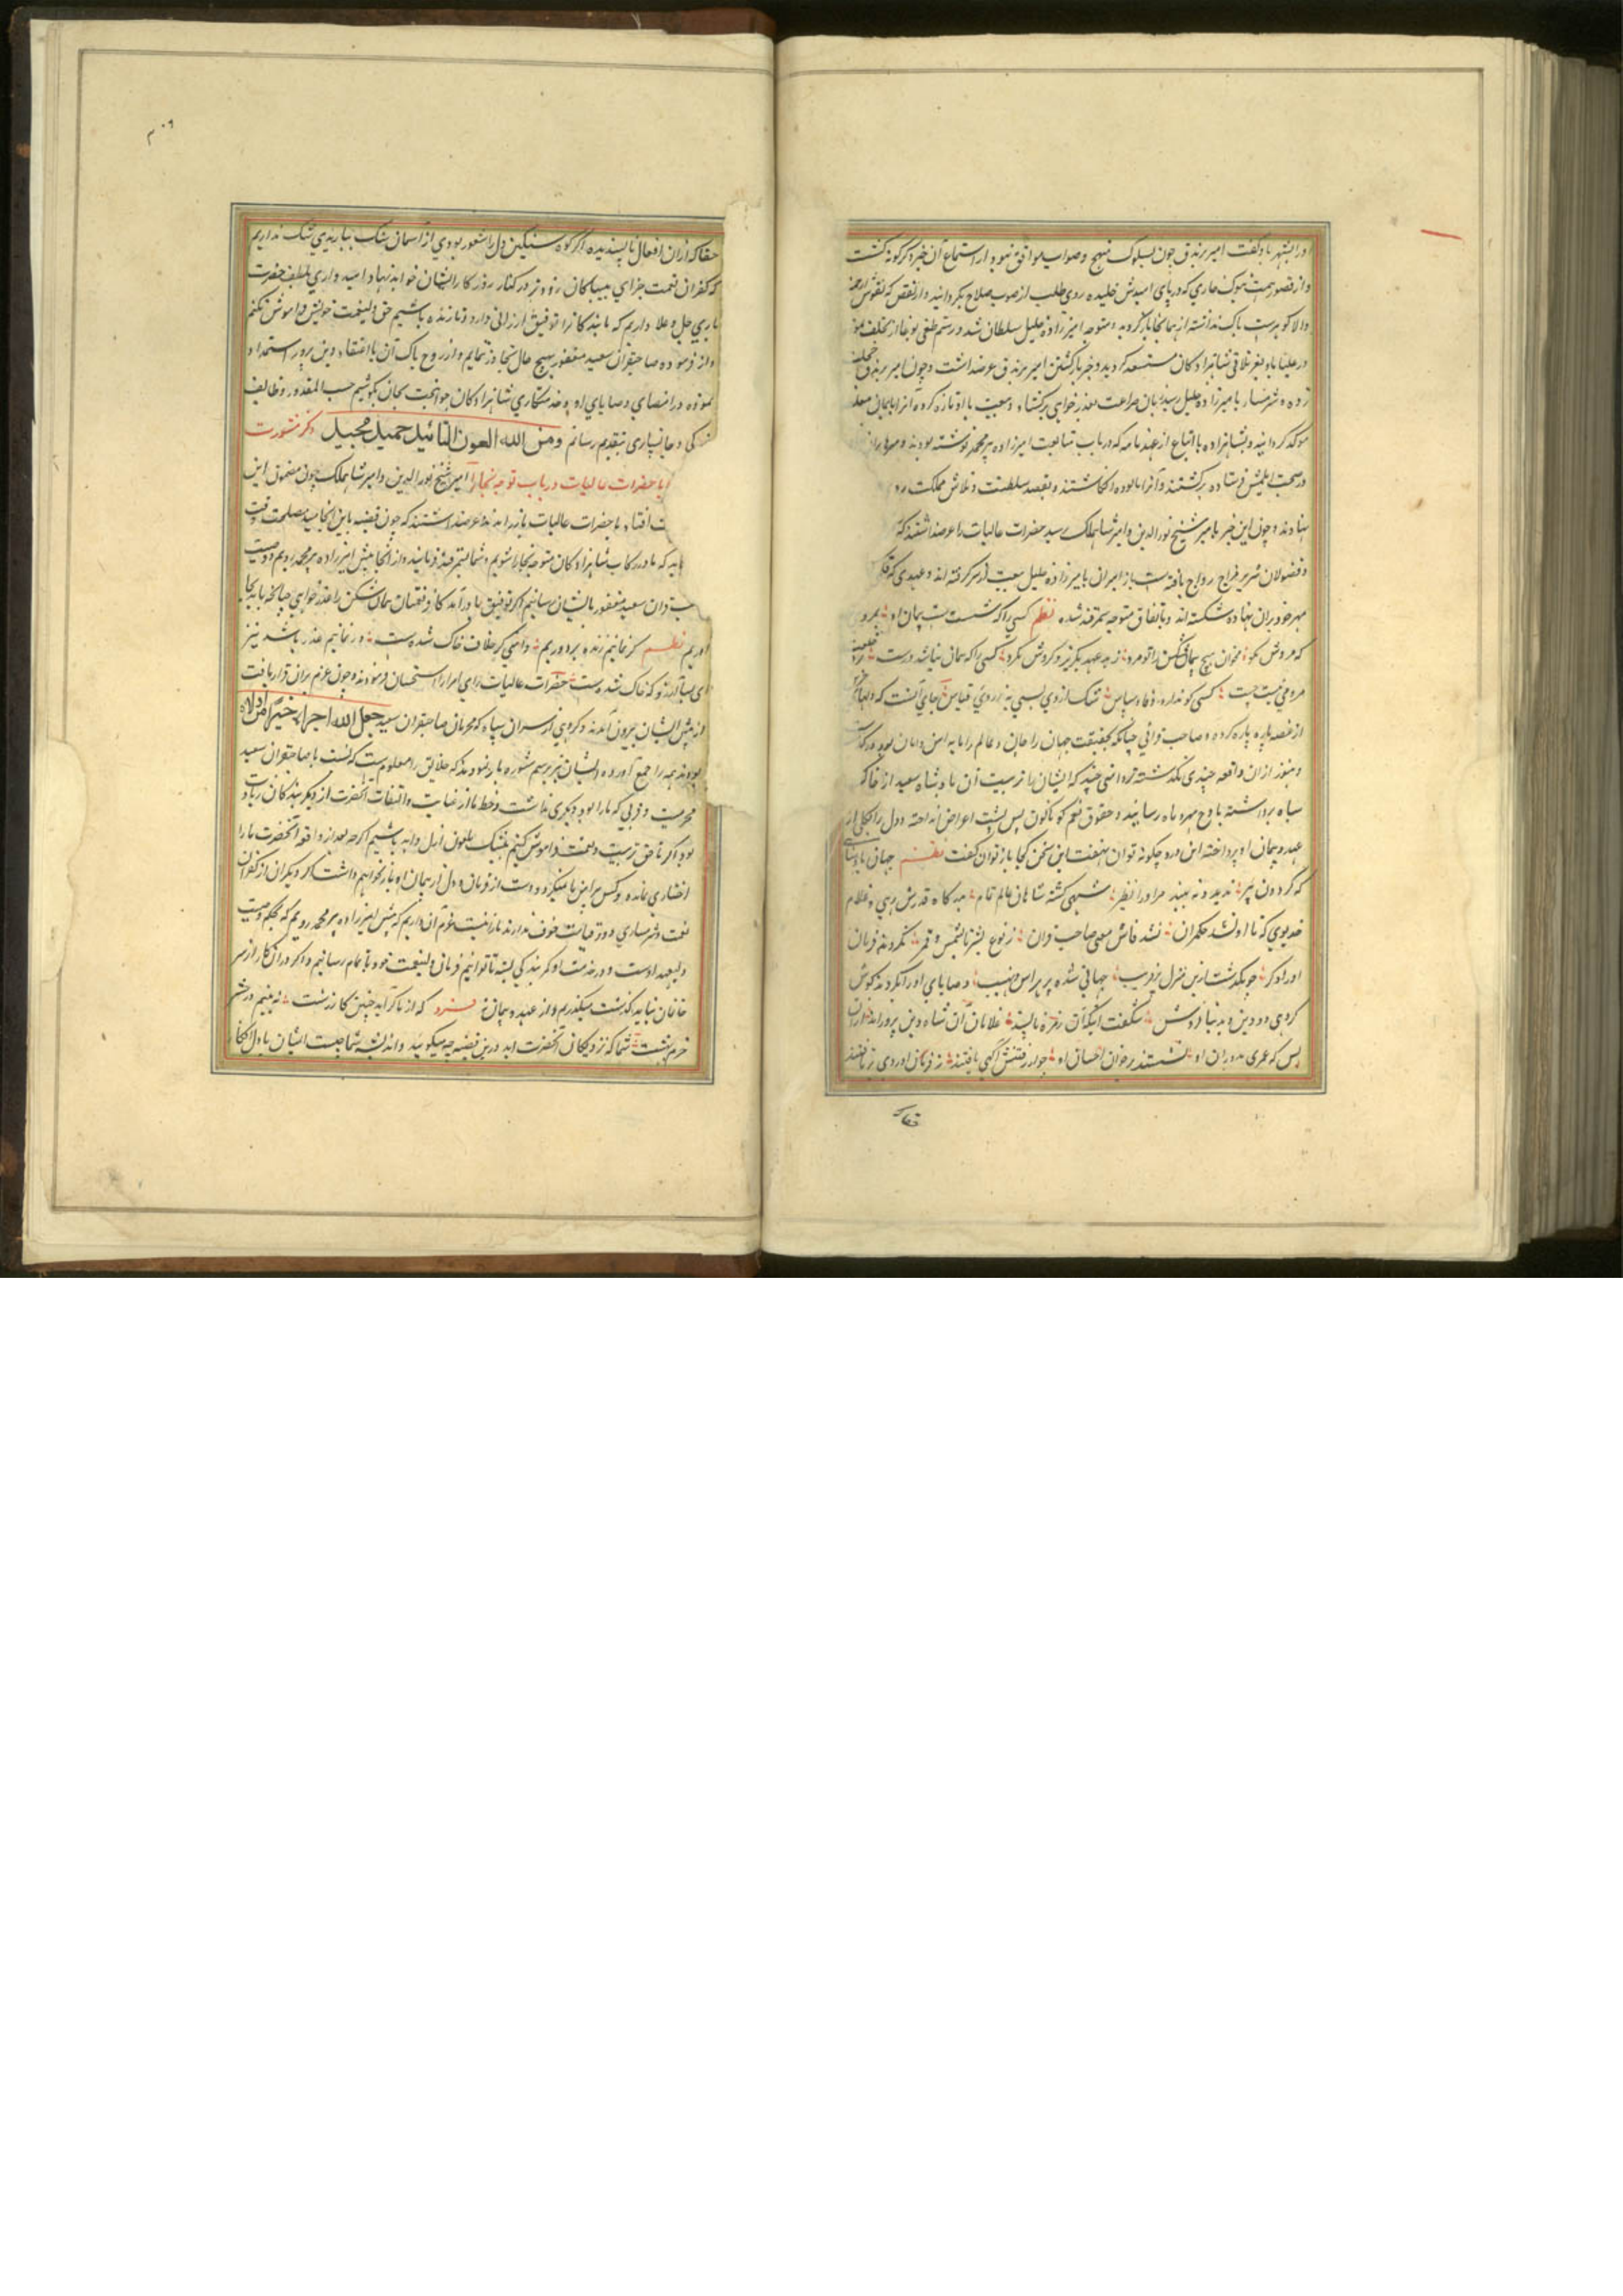 اورا بشهر باو گفت امیر برندق چون سلوک منهج و صواب موافق نبود از استماع آن خبر دگرگونه گشت
و از قصور همت بنوک خاری که در پای امیدش خلیده روی طلب از صوب صلاح بگردانید و از نقص که نقوش
والا کوهرست باک نداشته از همانجا بازگردید و متوجه امیرزاده خلیل سلطان شد و رستم طغی بوغا از تخلف
در علیاباد بعز تلاقی شاهزادکان مستسعد گردید و خبر بازگشتن امیر برندق عرضه داشت و چون امیر برندق
زده و شرمسار بامیرزاده خلیل رسید زبان ضراعت بعذرخواهی برگشاد و بیعت با او تازه کرد و آنرا بایمان مغلظ
موکد گردانید و شاهزاده با اتباع از عهدنامه که در باب متابعت امیرزاده پیرمحمد نوشته بودند و مهرها بران
در صحبت ایلچیش فرستاده برگشتند و آنرا نابوده انگاشتند و بقصد سلطنت و تلاش مملکت رو
نهادند و چون این خبر بامیر شیخ نورالدین و امیر شاهملک رسید حضرات عالیات را عرضه داشتند که
و فضولان شریر مزاج رواج یافته است باز امیران بامیرزاده خلیل بیعت از سر گرفته اند و عهدی که
مهر خود بران نهاده شکسته اند و باتفاق متوجه سمرقند شده نظم کسی را که شستست پیمان او بمرو
که مردش مگو مخوان هیچ پیمان شکن را تو مرد ز بد عهد بگریز و گردش مگرد کسی را که پیمان نباشد درست
مردمی نیست چست کسی کو ندارد وفا و سپاس سگ از وی بسی به ز روی قیاس جای آنست که دلها
از غصه پاره پاره گردد و صاحب قرانی چنانکه بحقیقت جهان را جان و عالم را مایه امن و امان بود درگذشت
و هنوز ازان واقعه چندی نگذشته مردانی چند که ایشان را تربیت آن پادشاه سعید از خاک
سیاه برداشته باوج مهر و ماه رسانید و حقوق نعم کوناکون پس پشت اعراض انداخته و دل را بکلی از
عهد و پیمان او پرداخته این درد چگونه توان نهفت این سخن کجا باز توان گفت نظم جهان پادشاهی
که گردون پیر ندید و نه بیند مر او را نظیر شهی کشته شاهان عالم تمام بدرکاه قدرش رهی و غلام
خدیوی که تا او نشد حکمران نشد فاش معنی صاحب قران ز نوع بشر تا بشمس و قمر نکردند فرمان
او را دکر چو بگذشت ازین منزل پر فریب جهانی شده پر هراس و نهیب وصایای او را نکردند گوش
گروهی دو دین و بدنیا فروش شگفت اینک آن زمره ناپسند غلامان آن شاه دین پرور اند
پس که عمری بدوران او نشستند بر خوان احسان او چو از رفتنش آگهی یافتند ز فرمان او روی برتافتند
حقاکه
۳۰۹
حقاکه ازان افعال ناپسندیده اگر کوه سنگین دل را شعور بودی از آسمان سنگ بباریدی شک نداریم
که کفران نعمت جزای بیباکان زود تر در کنار روزکار ایشان خواهد نهاد و امیدواری بلطف حضرت
باری جل و علا داریم که ما بندکانرا توفیق ارزانی دارد و تا زنده باشیم حق ولینعمت خویش فراموش نکنیم
و از فرموده صاحبقران سعید مغفور بهیچ حال تجاوز ننمایم و از روح پاک آن با اعتقاد دین پرور استمداد
نموده در امضای وصایای او و خدمتکاری شاهزادکان جوانبخت بجان بکوشیم حسب المقدور وظایف
کی و جانسپاری بتقدیم رسانم ومن الله العون التائید جمیل مجیل ذکر مشورت
با حضرات عالیات در باب توجه بخارا امیر شیخ نورالدین و امیر شاهملک چون مضمون این
ت افتاد با حضرات عالیات باز راندند و عرضه داشتند که چون قضیه باین انجامید مصلحت وقت
باید که ما در رکاب شاهزادکان متوجه بخارا شویم و شما بسمرقند فرمایند و از انجا پیش امیرزاده پیرمحمد رویم و وصیت
ب قران سعید مغفور بایشان رسانیم اگر توفیق یاور آید کار نقضان پیمان شکن را عذر خواهی چنانکه باید بجا
آوریم نظم گر بمانیم زنده بردوزیم دامنی کز خلاف خاک شدست ور نمانیم عذر باشد نیز
ای بسا آرزو که خاک شدست حضرات عالیات رای امرا را استحسان فرمودند و چون عزم بران قرار یافت
از پیش ایشان بیرون آمدند و گروهی از سران سپاه که محرمان صاحبقران سعید جعل الله اجزاء خیرا من اولاه
بودند همه را جمع آورده ایشان نیز برسم مشوره باز نمودند که خلایق را معلومست که نسبت با صاحبقران سعید
محرمیت و قربی که ما را بود دیگری نداشت و حظ ما از عنایت و التفات آنحضرت از دیگر بندکان زیاده
بود اگر ما حق تربیت و نعمت فراموش کنیم بیشک ملعون ازل و ابد باشیم اگرچه بعد از واقعه آنحضرت ما را
اختیاری نمانده و کس براین ما نمیگردد و دست از فرمان و دل از پیمان او باز نخواهیم داشت اگر دیگران از کفران
نعمت و شرمساری دو قیامت خوف ندارند ما را نیست عزم آن داریم که پیش امیرزاده پیرمحمد رویم که بحکم وصیت
ولیعهد اوست و در خدمت او کمر بندکی بسته تا توانیم فرمان ولینعمت خود باتمام رسانیم و اگر در ان کار از سر
خانمان بباید گذشت میگذریم و از عهد و پیمان نه فرد که از ما کر آید چنین کار زشت نه بینیم در حشر
خرم بهشت شما که نزدیکان آنحضرت اید درین قضیه چه میگوئید و اندیشه شما چیست ایشان با دل